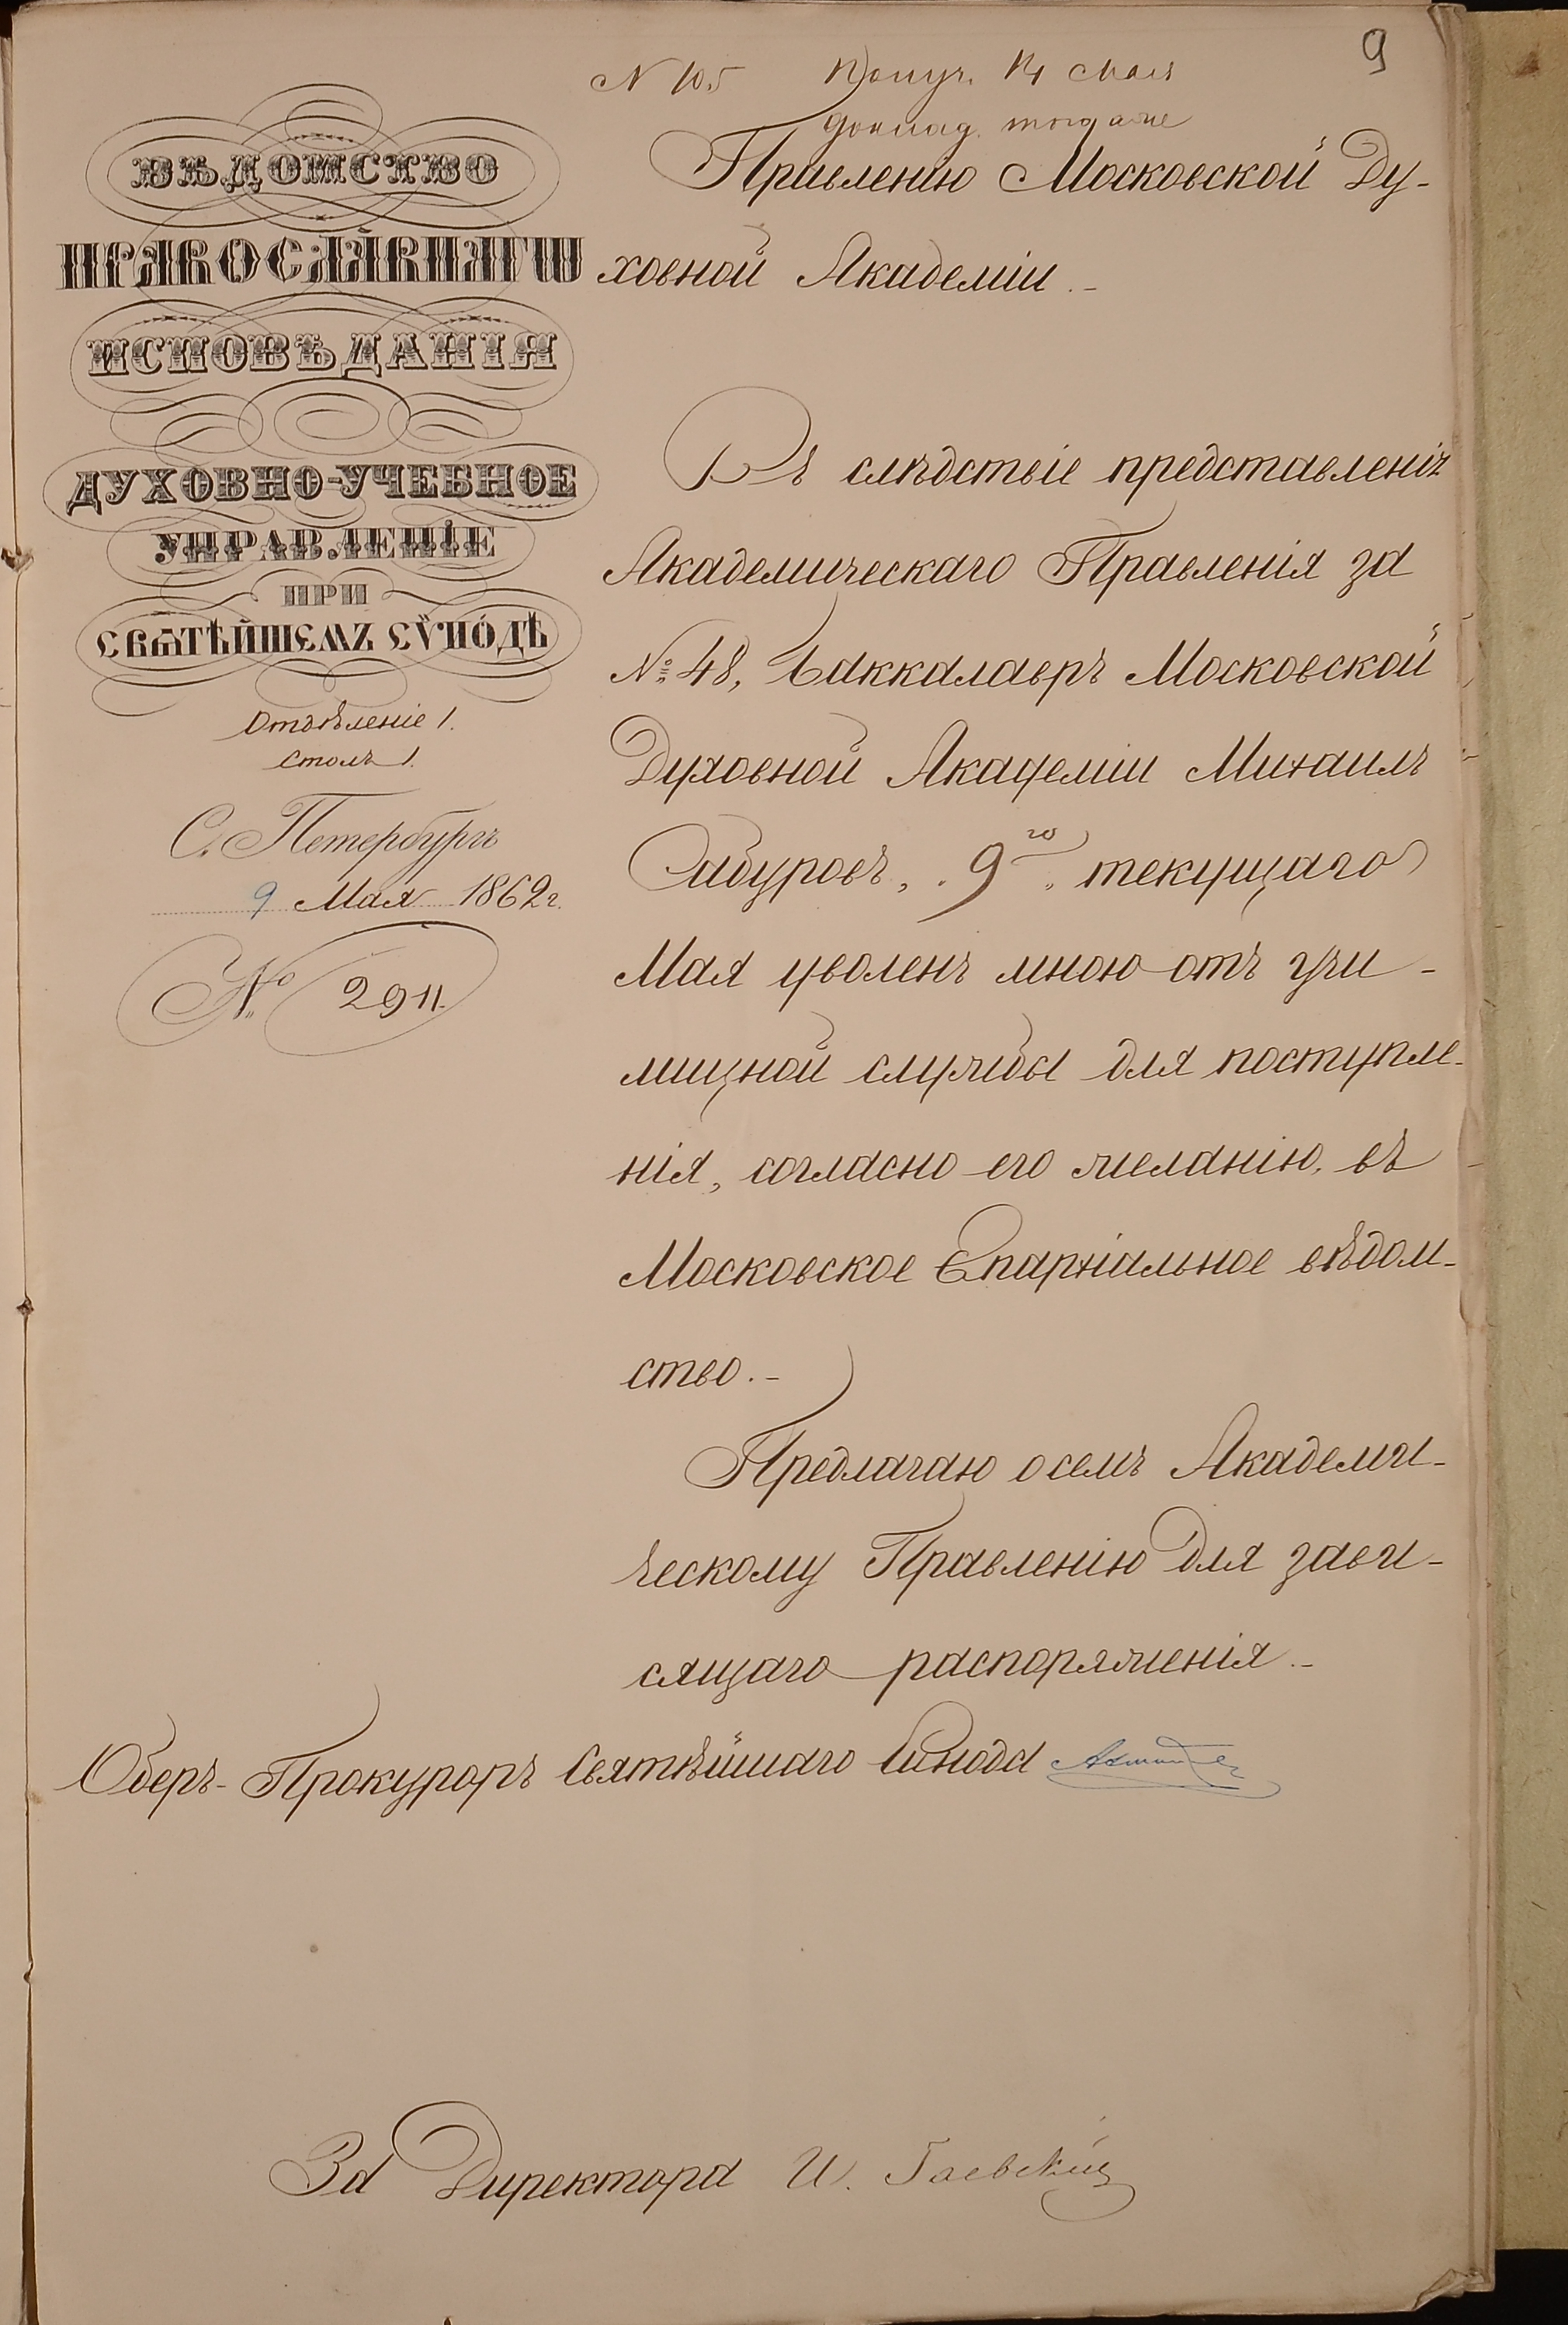 9
N 105 Получ. 14 Мая
доклад. тогда же
ВѢДОМСТВО
ПРАВОСЛАВНАГѠ
ИСПОВѢДАНІЯ
ДУХОВНО-УЧЕБНОЕ
УПРАВЛЕНІЕ
ПРИ
СВѦТѢЙШЕМЪ СѴНОДѢ
Отдѣленіе 1.
Столъ 1.
С. Петербургъ
9 Мая 1862 г.
№ 2911.
Правленію Московской Ду-
ховной Академіи.-
Въ слѣдствіе представленія
Академическаго Правленія за
№ 48, Баккалавръ Московской
Духовной Академіи Михаилъ
Сабуровъ, 9го текущаго
Мая уволенъ мною отъ учи-
лищной службы для поступле-
нія, согласно его желанію, въ
Московское Епархіальное вѣдом-
ство.-
Предлагаю о семъ Академи-
ческому Правленію для зави-
сящаго распоряженія.-
Оберъ-Прокуроръ Святѣйшаго Синода
За Директора И. Гаевскій